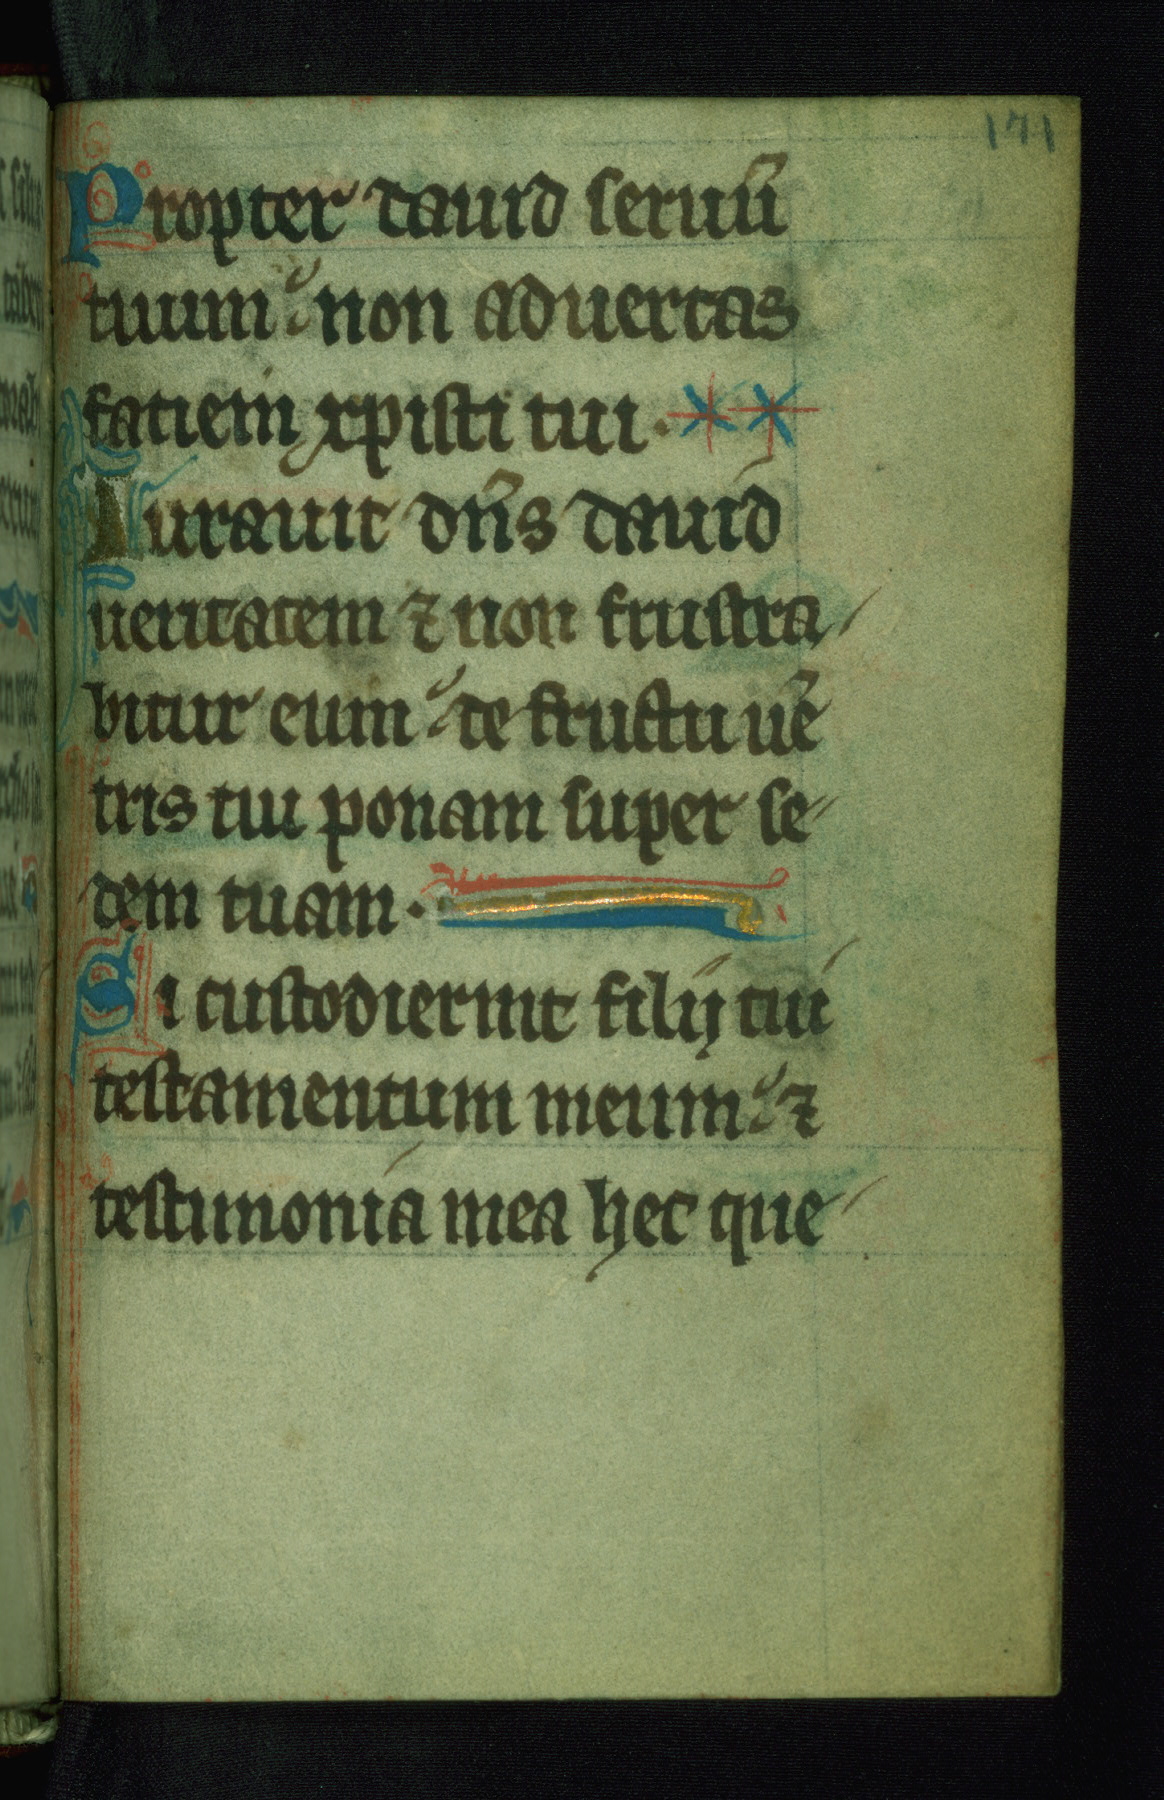 171
Propter dauid seruū
tuum non aduertas
faciem xpisti tui.
Iurauit dn̄s dauid
ueritatem ⁊ non frustra
bitur eum de fructu uē
tris tui ponam super se
dem tuam.
Si custodierint filij tui
testamentum meum ⁊
testimonia mea hec que